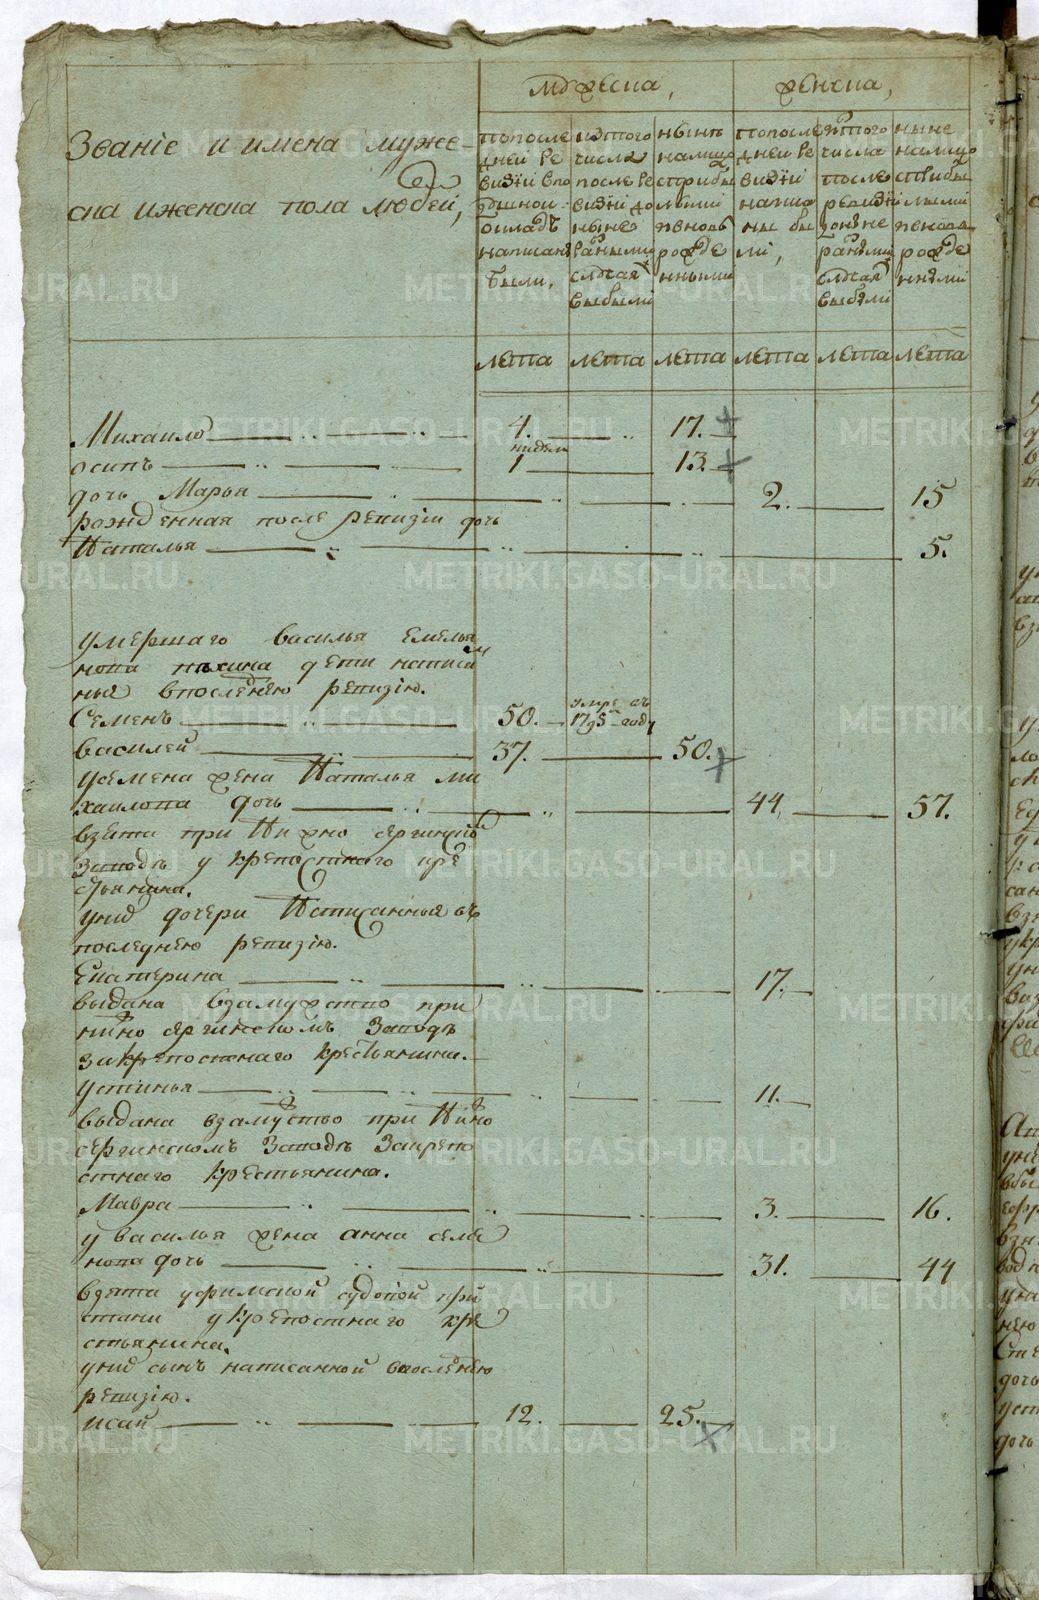 мужеска,
женска,
Званіе и имена муже-
ска иженска пола людей,
попосле
дней ре
визіи впо
душной
окладъ
написаны
были,
изтого
числа
после ре
визіи до
ныне
разными
случаи
выбыли
нынѣ
налицо
сприбы
лыми
вновь
рожде
нными
попосле
дней ре
визіи
написа
ны бы
ли,
изтого
числа
после
ревизіи
доныне
разными
случаи
выбыли
ныне
налицо
сприбы
лыми
вновь
рожде
нными
лета лета лета лета лета лета
Михаило 4. 17.
недели
осипъ 1 13.
дочь Марья 2. 15
рожденная после ревизіи дочь
Наталья 5.
умершаго василья емелья
нова дети написа
ныя впоследнею ревизію.
умре въ
Семенъ 50. 1795 году
василей 37. 50.
усемена жена Наталья ми
хаилова дочь 44. 57.
взята при Нижно сергинском
заводѣ у крепостнаго кре
стьянина.
уних дочери Написанныя въ
последнею ревизію.
Екатерина 17.
выдана взамужство при
нижно сергинскомъ Заводѣ
закрепостнаго крестьянина.
устинья 11.
выдана взамужство при Нижно
сергинскомъ Заводѣ Закрепо
стнаго крестьянина.
Мавра 3. 16.
у василья жена анна семе
нова дочь 31. 44
взята уфимской судовой при
стани укрепостнаго кре
стьянина.
уних сынъ написанной впоследнею
ревизію.
исай 12. 25.
METRIKI.GASO-URAL.RU